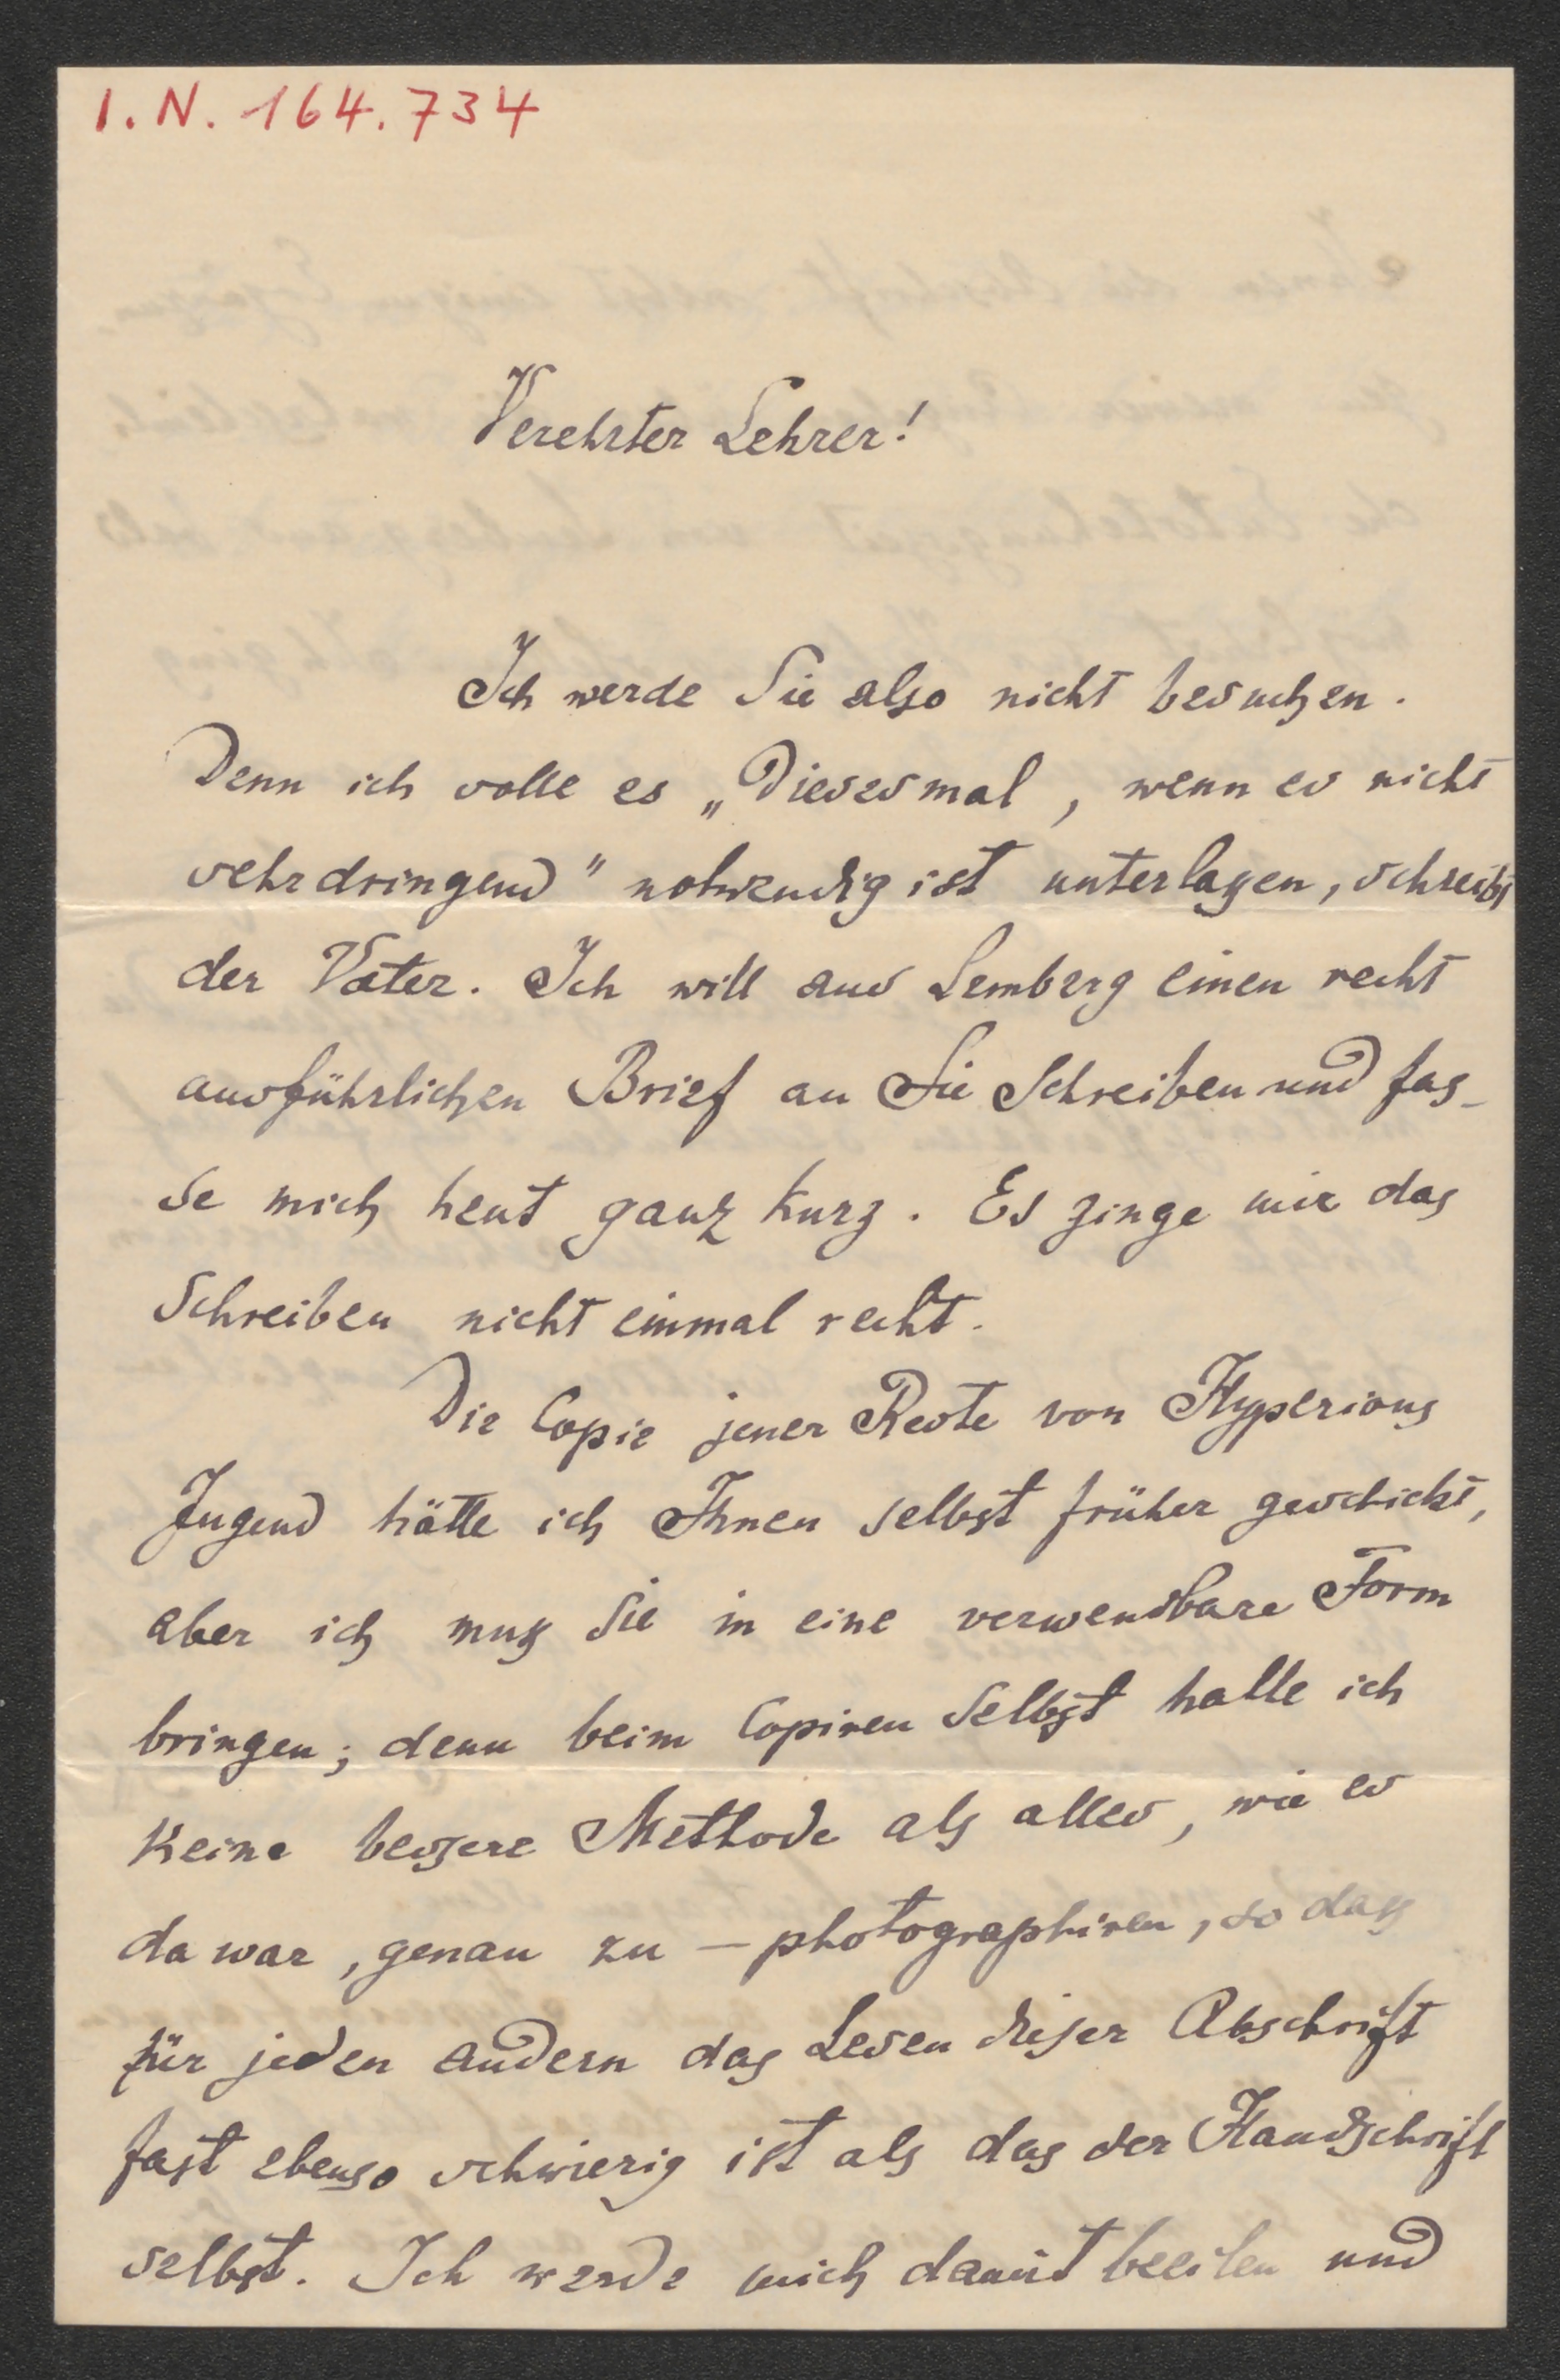 I.N. 164.734
Verehrter Lehrer!
Ich werde Sie also nicht besuchen.
Denn ich solle es „Diesesmal, wenn es nicht
sehr dringend" nothwendig ist unterlassen, schreibt
der Vater. Ich will aus Lemberg einen recht
ausführlichen Brief an Sie Schreiben und fas-
se mich heut ganz kurz. Es ginge mir das
Schreiben nicht einmal recht.
Die Copie jener Reste von Hyperions
Jugend hätte ich Ihnen selbst früher geschickt,
aber ich muß Sie in eine verwendbare Form
bringen; denn beim Copiren Selbst hatte ich
keine bessere Methode als alles, wie es
da war, genau zu — photographiren, so daß
für jeden andern das Lesen dieser Abschrift
fast ebenso schwierig ist als das der Handschrift
selbst. Ich werde mich damit beeilen und